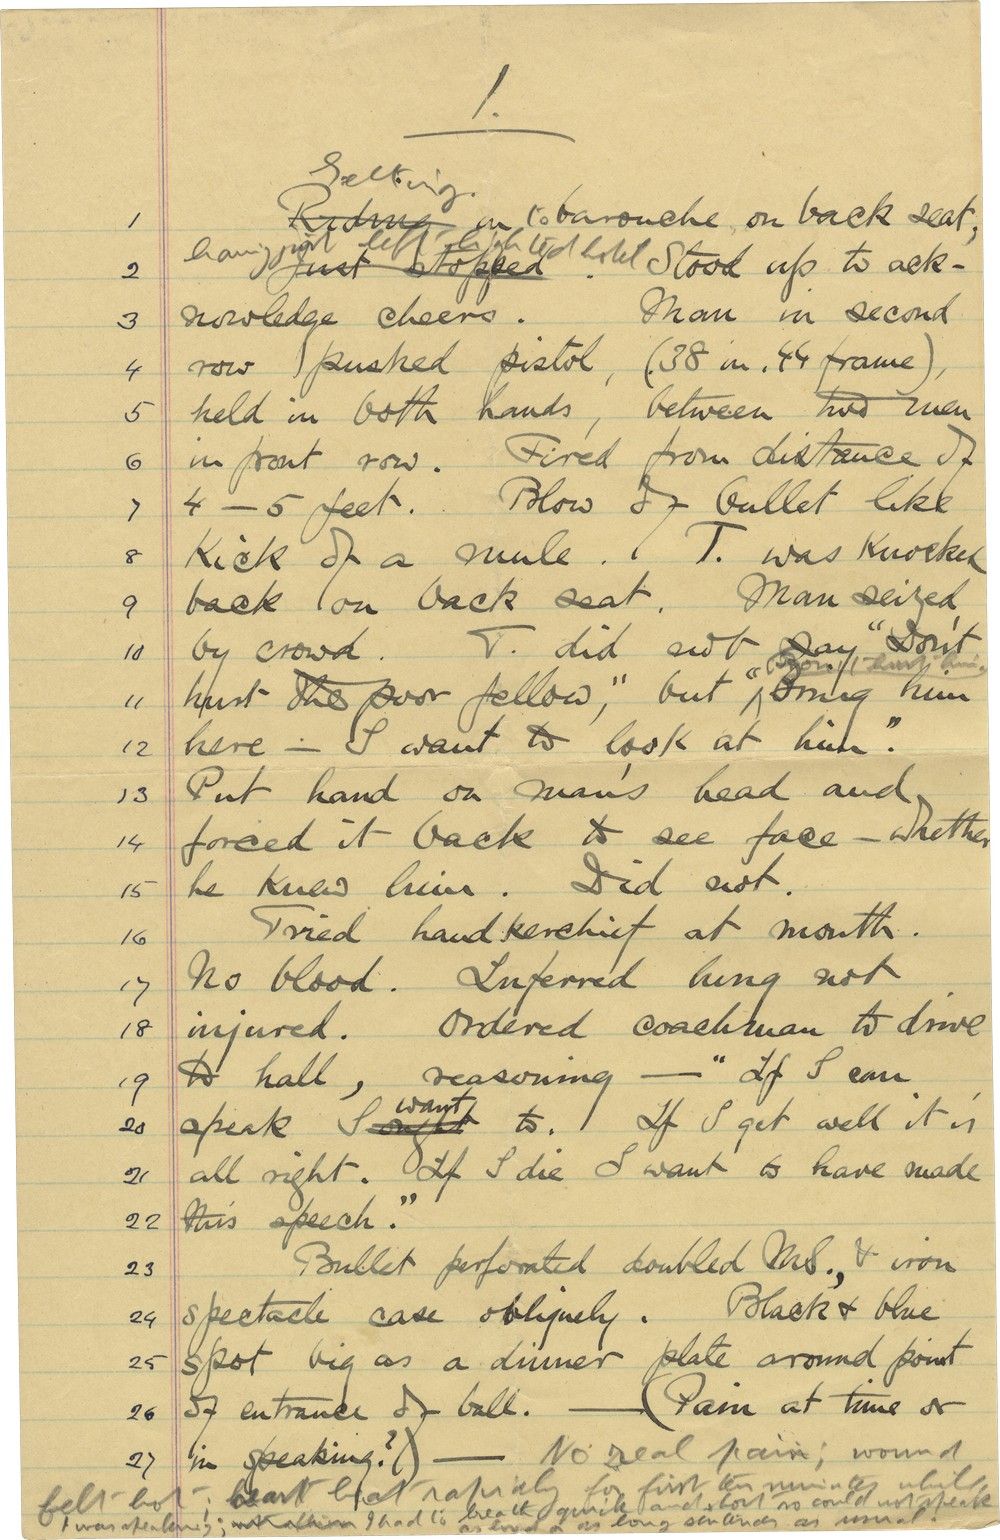 1.
Getting
1 Riding in to barouche on back seat,
having just left hotel
2 Just stopped. Stood up to ack-
3 nowledge cheers. Man in second
4 row pushed pistol, (.38 in .44 frame),
5 held in both hands, between two men
6 in front row. Fired from distance of
7 4 – 5 feet. Blow of bullet like
8 Kick of a mule. T. was Knocked
9 back on back seat. Man seized
10 by crowd. T. did not say "Don't
Don't hurt him.
11 hurt the poor fellow," but "Bring him
12 here – I want to look at him."
13 Put hand on man's head and
14 forced it back to see face – whether
15 he Knew him. Did not.
16 Tried handkerchief at mouth.
17 No blood. Inferred lung not
18 injured. Ordered coachman to drive
19 to hall, reasoning — "If I can
want
20 speak I ought to. If I get well it is
21 all right. If I die I want to have made
22 this speech."
23 Bullet perforated doubled MS., & iron
24 spectacle case obliquely. Black & blue
25 spot big as a dinner plate around point
26 of entrance of ball. — (Pain at time or
27 in speaking?) — No real pain; wound
felt hot; heart beat rapidly for first ten minutes while
I was speaking; I had to breathe quick and short so could not speak
as loud or as long sentences as usual.